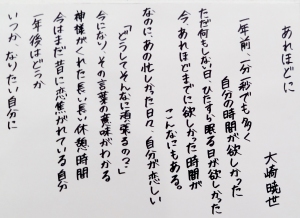 あれほどに
大崎暁世
一年前、一分一秒でも多く
自分の時間が欲しかった
ただ何もしない日、ひたすら眠る日が欲しかった
今、あれほどまでに欲しかった時間が
こんなにもある。
なのに、あの忙しかった日々、自分が恋しい
「どうしてそんなに頑張るの?」
今になり、その言葉の意味がわかる
神様がくれた長い長い休憩時間
今はまだ昔に恋焦がれている自分
一年後はどうか
いつか、なりたい自分に